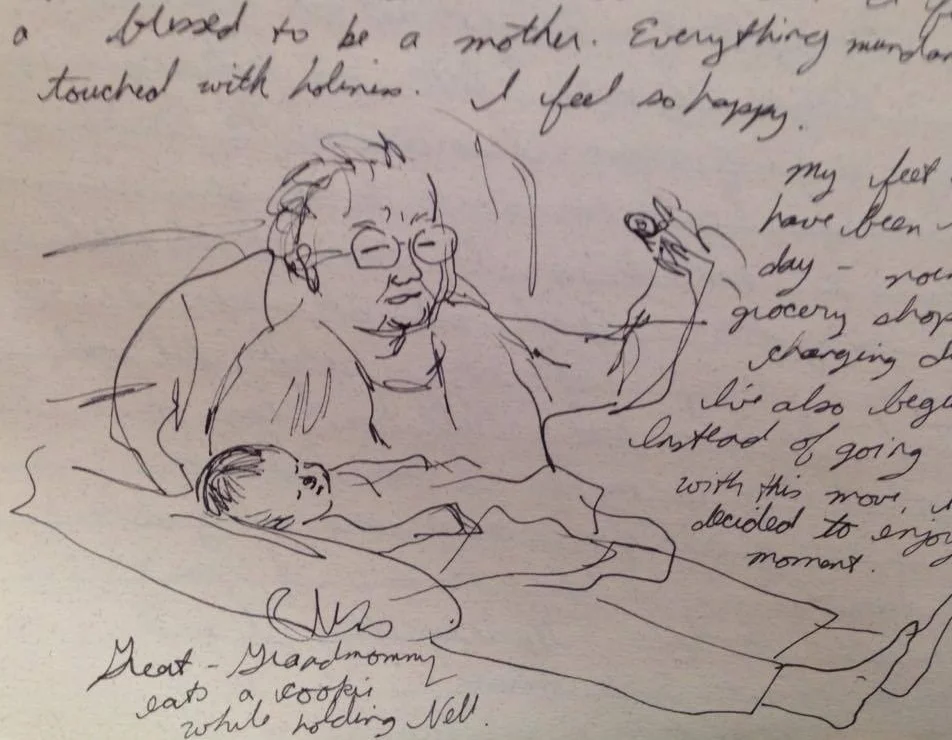 a blessed to be a mother. Everything
touched with holiness. I feel so happy.
my feet
have been
day -
grocery shop
changing
I've also begu
Instead of going
with this move,
decided to enjoy
moment.
Great-Grandmommy
eats a cookie
while holding Nell.